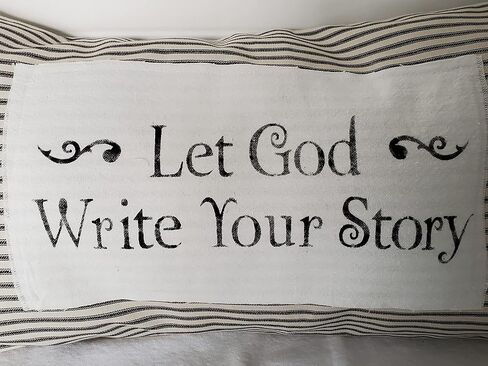 Let God
Write Your Story